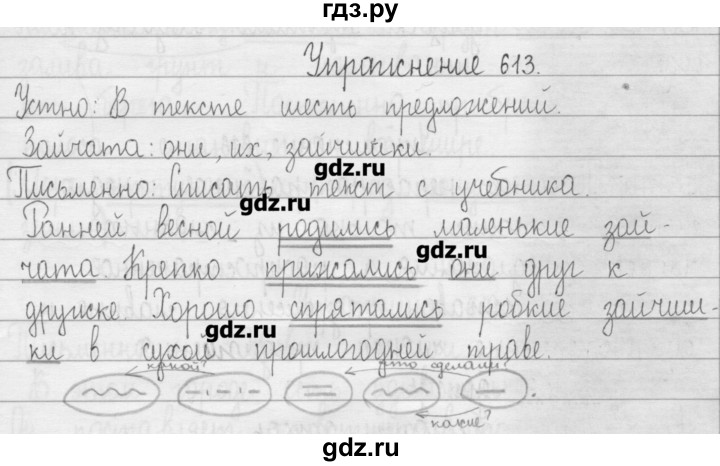 гдз.ру
Упражнение 613.
Устно: В тексте шесть предложений.
Зайчата: они, их, зайчишки.
гдз.ру
Письменно: Списать текст с учебника.
гдз.ру
Ранней весной родились маленькие зай-
гдз.ру
чата. Крепко прижались они друг к
дружке. Хорошо спрятались робкие зайчиш-
гдз.ру
ки в сухой прошлогодней траве.
какой? что сделали?
какие?
гдз.ру